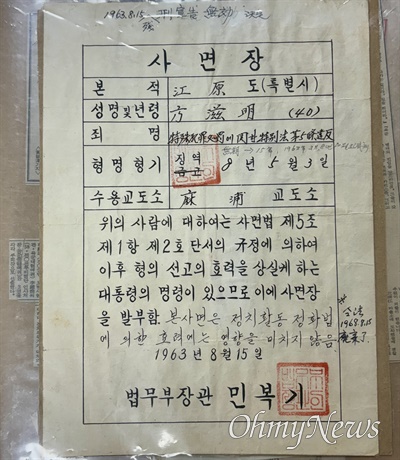 1963.8.15 刑宣告 無効 決定
사 면 장
본 적 江原 도(특별시)
성명및년령 方滋明 (40)
죄 명 特殊犯罪処罰에 関한 特別法 第5條違反
형명형기 징역 금고 8년 5월 3일
수용교도소 麻浦 교도소
위의 사람에 대하여는 사면법 제5조
제1항 제2호 단서의 규정에 의하여
이후 형의 선고의 효력을 상실케 하는
대통령의 명령이 있으므로 이에 사면장
을 발부함. 본사면은 정치활동 정화법
에 의한 효력에는 영향을 미치지 않음.
1963年 8月 15日
1968.8.15
법무부장관 민복기
OhmyNews